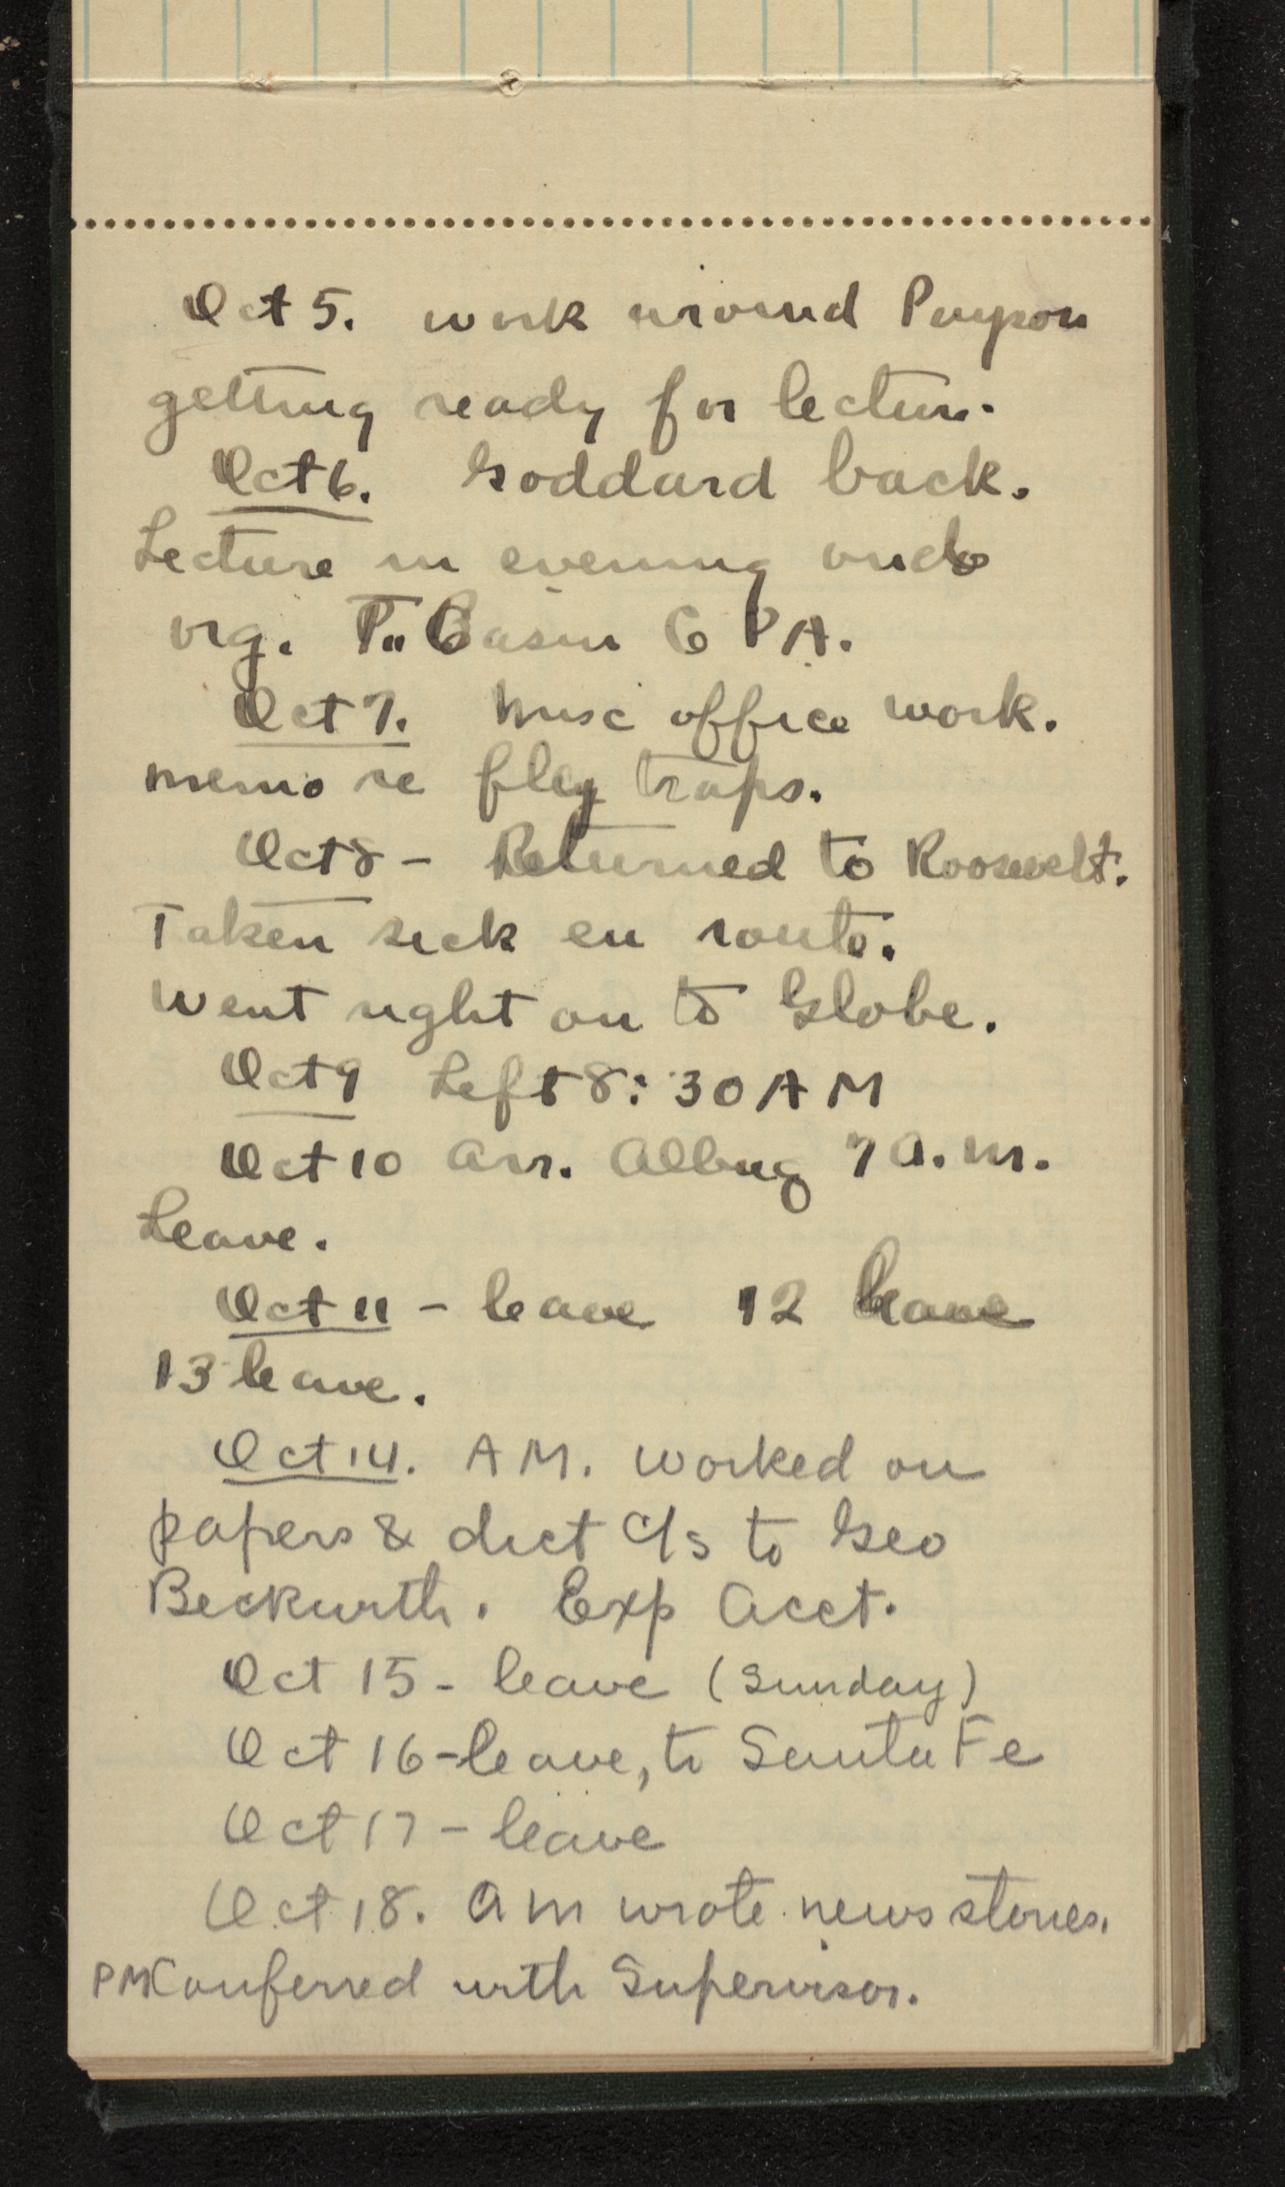 Oct 5. work around Payson
getting ready for lecture.
Oct 6. Goddard back.
Lecture in evening and
org. T. Basin G P A.
Oct 7. Misc office work.
memo re fley traps.
Oct 8 - Returned to Roosevelt.
Taken sick en route.
Went right on to Globe.
Oct 9 Left 8:30 AM
Oct 10 Arr. Albuq 7 a.m.
Leave.
Oct 11 - leave 12 leave
13 leave.
Oct 14. AM. Worked on
papers & dict to Geo
Beckwith. Exp Acct.
Oct 15 - leave (Sunday)
Oct 16 - leave, to Santa Fe
Oct 17 - leave
Oct 18. AM wrote news stories.
PM Conferred with Supervisor.